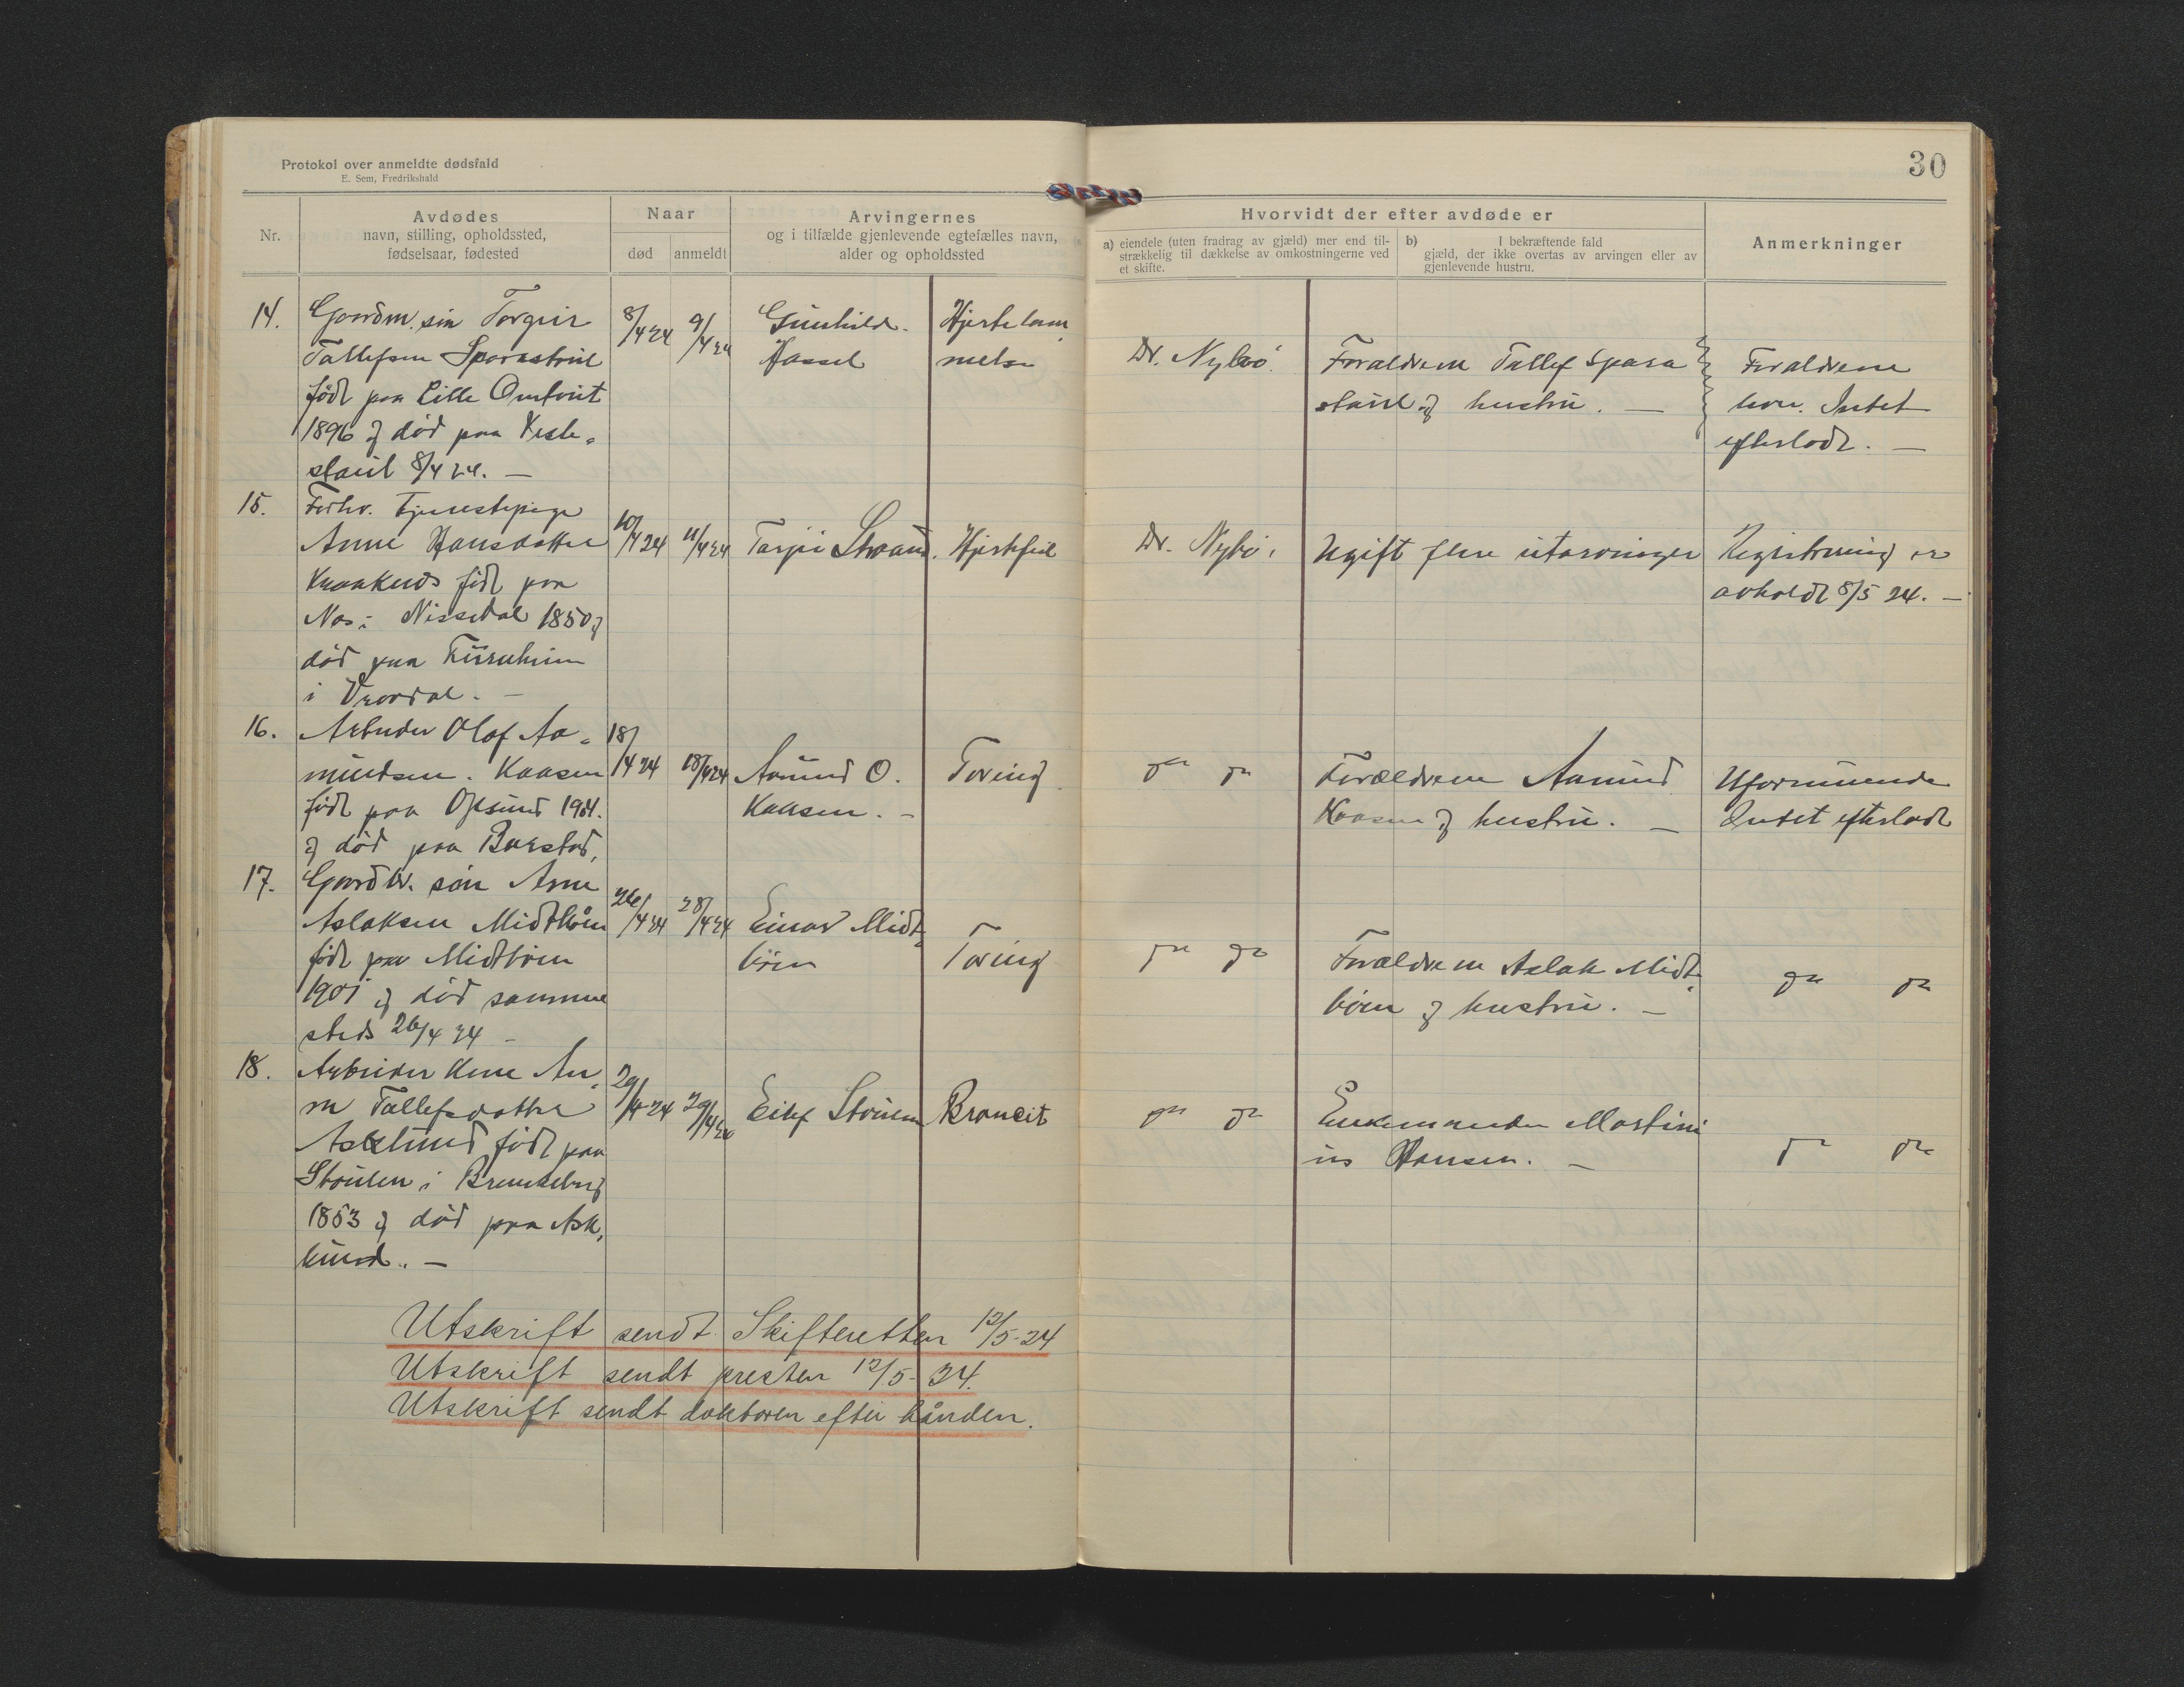 Protokol over anmeldte dødsfald
E. Sem, Fredrikshald
30
Nr.
Avdødes
navn, stilling, opholdssted,
fødselsaar, fødested
Naar
død
anmeldt
Arvingernes
og i tilfælde gjenlevende egtefælles navn,
alder og opholdssted
Hvorvidt der efter avdøde er
a) eiendele (uten fradrag av gjæld) mer end til-
strækkelig til dækkelse av omkostningerne ved
et skifte.
b) I bekræftende fald
gjæld, der ikke overtas av arvingen eller av
gjenlevende hustru.
Anmerkninger
14.
Gaardm. søn Torgeir
Tallefsen Sparastøil
født paa Lille Omtveit
1896 og død paa Vesle-
støil 8/4 24. —
8/4 24
9/4 24
Gunhild
Hassel
Hjertelam
melse
Dr. Nybø.
Forældrene Tallef Spara
støil og hustru. —
Forældrene
lever. Intet
efterladt. —
15.
Forhv. Tjenestepige
Anne Hansdatter
født paa
Nes i Nissedal 1850 og
død paa
i Vraadal. —
10/4 24
11/4 24
Tarjei Straand.
Hjertefeil
Dr. Nybø.
Ugift flere utarvinger
Registrering er
avholdt 8/5 24. —
16.
Arbeider Olaf Aa-
mundsen. Kaasen
født paa Ofsund 1904.
og død paa Barstad.
18/4 24
18/4 24
Aamund O.
Kaasen. —
Tæring
do do
Forældrene Aamund
Kaasen og hustru. —
Uformuende
Intet efterladt
17.
Gaardbr. søn Arne
Aslaksen Midtbøen
født paa Midtbøen
1901 og død samme
steds 26/4 24 —
26/4 24
28/4 24
Einar Midt-
bøen
Tæring
do do
Forældrene Aslak Midt-
bøen og hustru. —
do do
18.
Arbeider Kone An-
ne Tallefsdatter
Asklund født paa
Støilen i Brunkeberg
1853 og død paa Ask-
lund. —
29/4 24
29/4 24
Eilef Støilen
Broncit
do do
Enkemanden Martini
us Hansen. —
do do
Utskrift sendt Skifteretten 12/5-24
Utskrift sendt presten 12/5-24.
Utskrift sendt doktoren efter hånden.